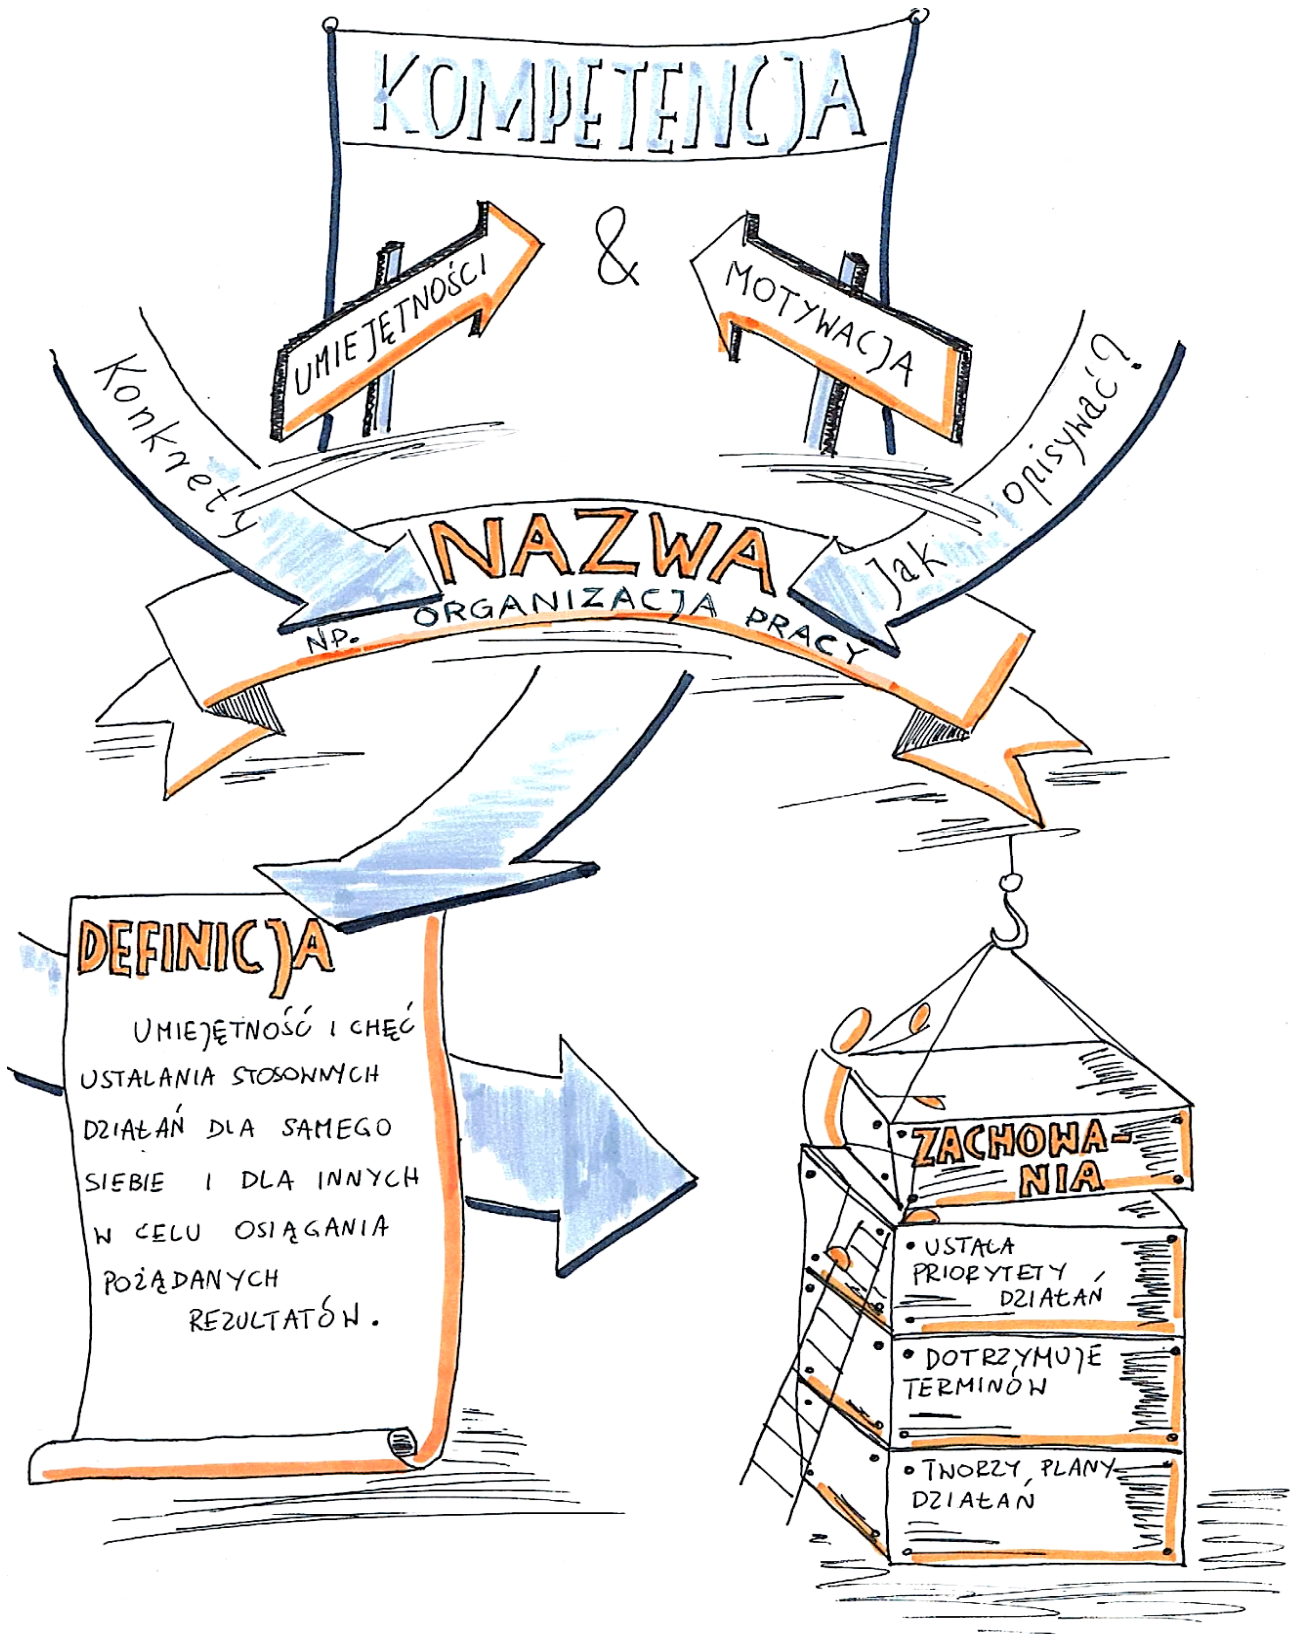 KOMPETENCJA
UMIEJĘTNOŚCI
&
MOTYWACJA
Konkrety
Jak opisywać?
NAZWA
NP. ORGANIZACJA PRACY
DEFINICJA
UMIEJĘTNOŚĆ I CHĘĆ
USTALANIA STOSOWNYCH
DZIAŁAŃ DLA SAMEGO
SIEBIE I DLA INNYCH
W CELU OSIĄGANIA
POŻĄDANYCH
REZULTATÓW.
ZACHOWA-
NIA
• USTALA
PRIORYTETY
DZIAŁAŃ
• DOTRZYMUJE
TERMINÓW
• TWORZY PLANY
DZIAŁAŃ